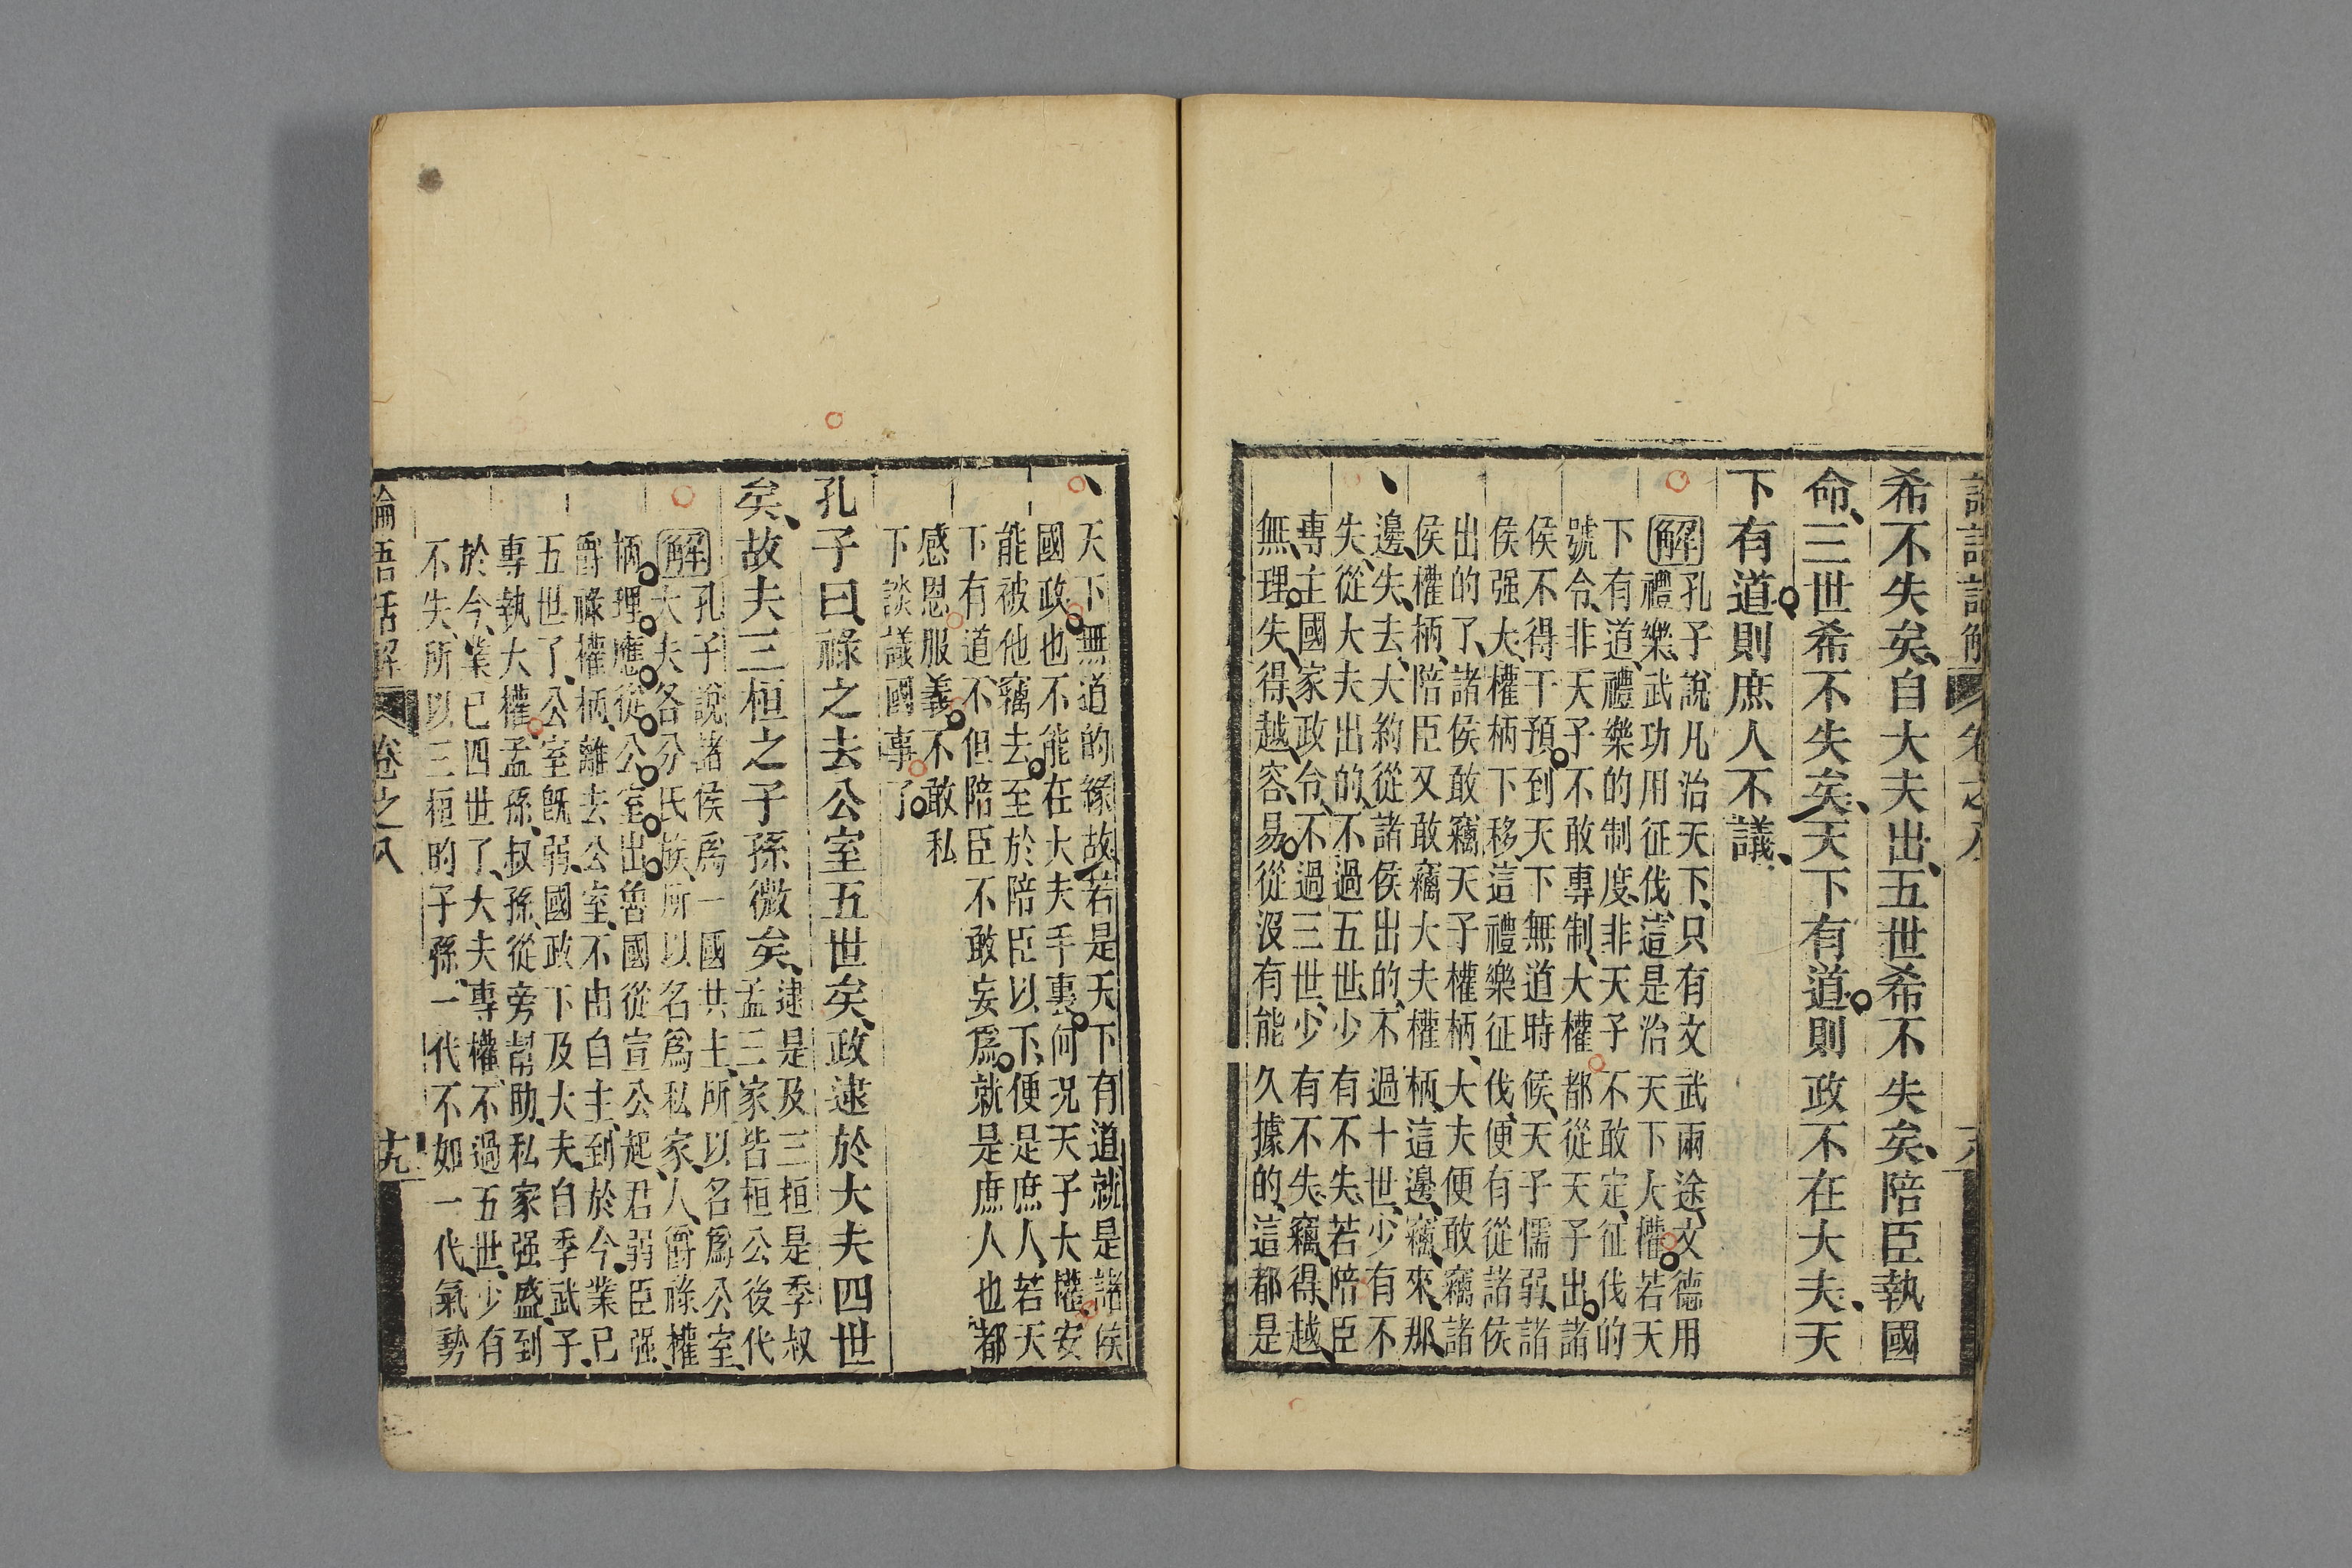 希不失矣、自大夫出、五世希不失矣、陪臣執國
命、三世希不失矣、天下有道則政不在大夫、天
下有道則庶人不議、
解孔子說凡治天下、只有文武兩途、文德用
禮樂、武功用征伐、這是治天下大權、若天
下有道、禮樂的制度、非天子不敢定、征伐的
號令、非天子不敢專制、大權都從天子出、諸
侯不得干預、到天下無道時候、天子懦弱、諸
侯强大、權柄下移、這禮樂征伐、便有從諸侯
出的了、諸侯敢竊天子權柄、大夫便敢竊諸
侯權柄、陪臣又敢竊大夫權柄、這邊竊來、那
邊失去、大約從諸侯出的、不過十世、少有不
失、從大夫出的、不過五世、少有不失、若陪臣
專主國家政令、不過三世、少有不失、竊得、越
無理失得越容易、從沒有能久據的、這都是
天下無道的緣故、若是天下有道、就是諸侯
國政也不能在大夫手裏、何况天子大權、安
能被他竊去、至於陪臣以下、便是庶人、若天
下有道、不但陪臣不敢妄爲、就是庶人也都
感恩服義、不敢私
下談議國事了
孔子曰祿之去公室五世矣、政逮於大夫四世
矣、故夫三桓之子孫微矣、逮是及三桓是季叔
孟三家皆桓公後代
解孔子說諸侯爲一國共主、所以名爲公室、
大夫各分氏族、所以名爲私家、人爵祿權
柄、理應從公室出、魯國從宣公起、君弱臣强、
爵祿權柄、離去公室、不由自主、到於今、業已
五世了、公室既弱、國政下及大夫、自季武子
專執大權、孟孫、叔孫、從旁幫助、私家强盛、到
於今、業已四世了、大夫專權、不過五世、少有
不失、所以三桓的子孫、一代不如一代、氣勢
論語話解 卷之八 十九